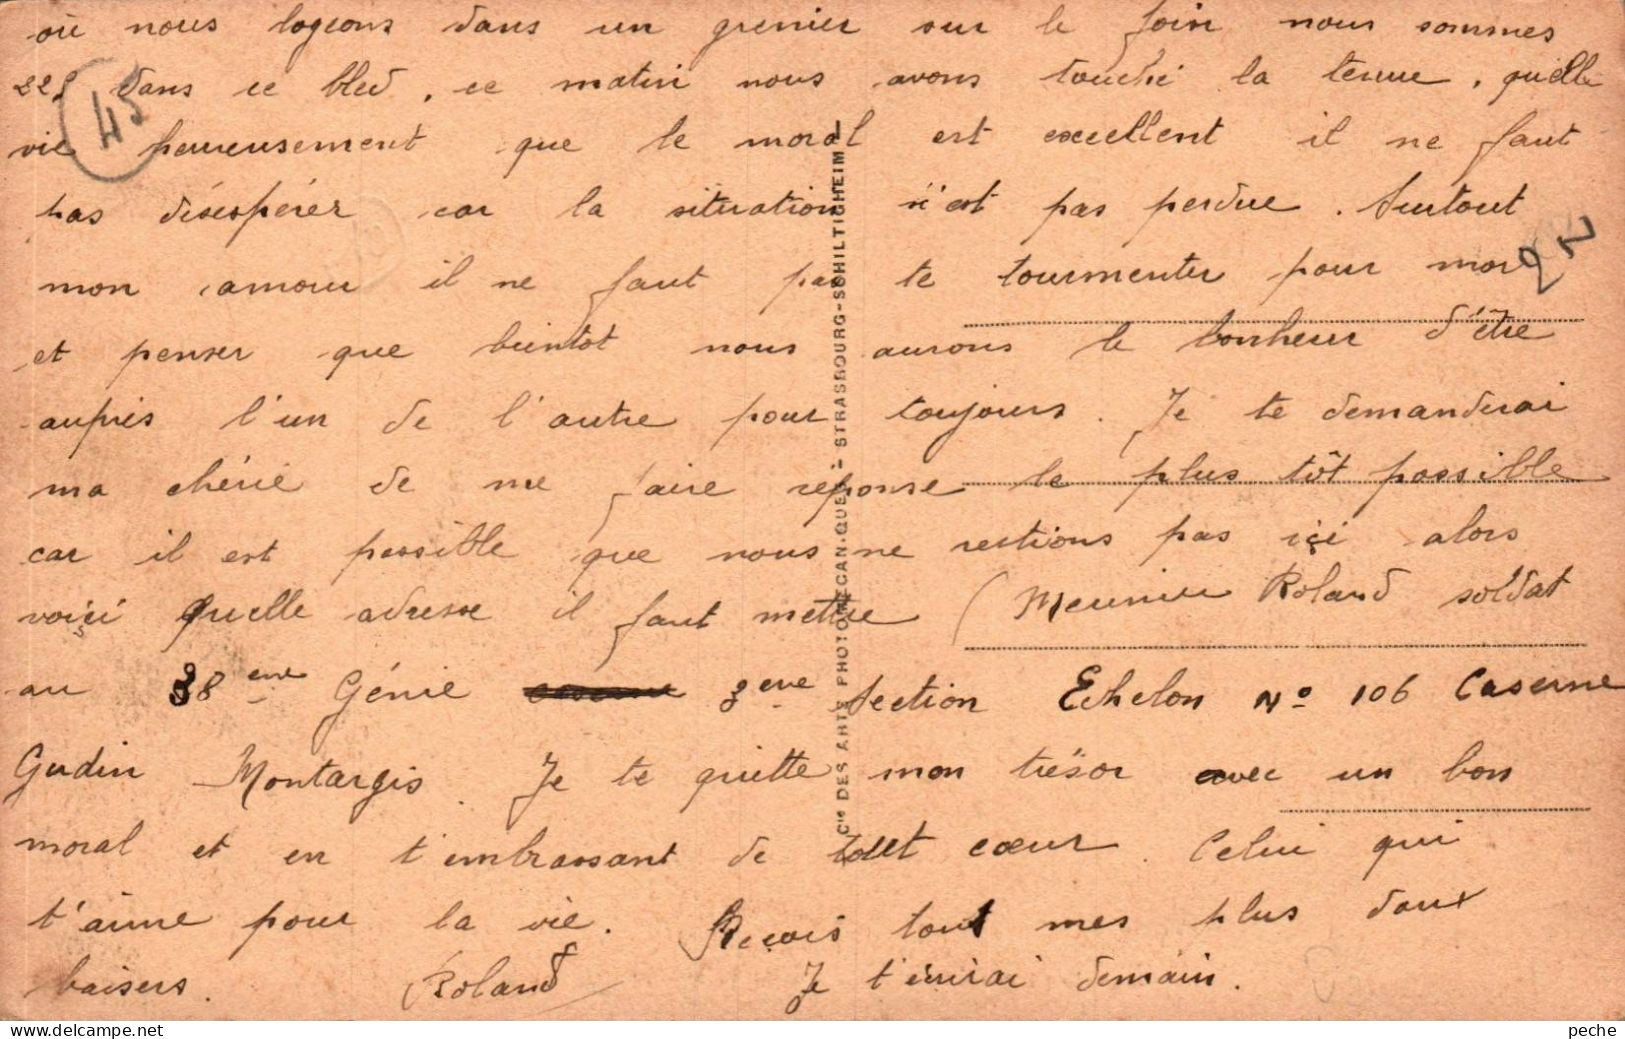 où nous logeons dans un grenier sur le foin nous sommes
225 dans ce bled, ce matin nous avons touché la tenue, quelle
vie heureusement que le moral est excellent il ne faut
pas désespérer car la situation n'est pas perdue. Surtout
mon amour il ne faut pas te tourmenter pour moi
et penser que bientot nous aurons le bonheur d'être
auprès l'un de l'autre pour toujours. Je te demanderai
ma chérie de me faire réponse le plus tôt possible
car il est possible que nous ne restions pas içi alors
voiçi quelle adresse il faut mettre (Meunier Roland soldat
au 38 eme Génie 3 eme Section Echelon No 106 Caserne
Gudin Montargis. Je te quitte mon trésor avec un bon
moral et en t'embrassant de tout cœur. Celui qui
t'aime pour la vie. Reçois tout mes plus doux
baisers. Roland Je t'écrirai demain.
45
Cie DES ARTS PHOTOMECANIQUES - STRASBOURG-SCHILTIGHEIM
peche